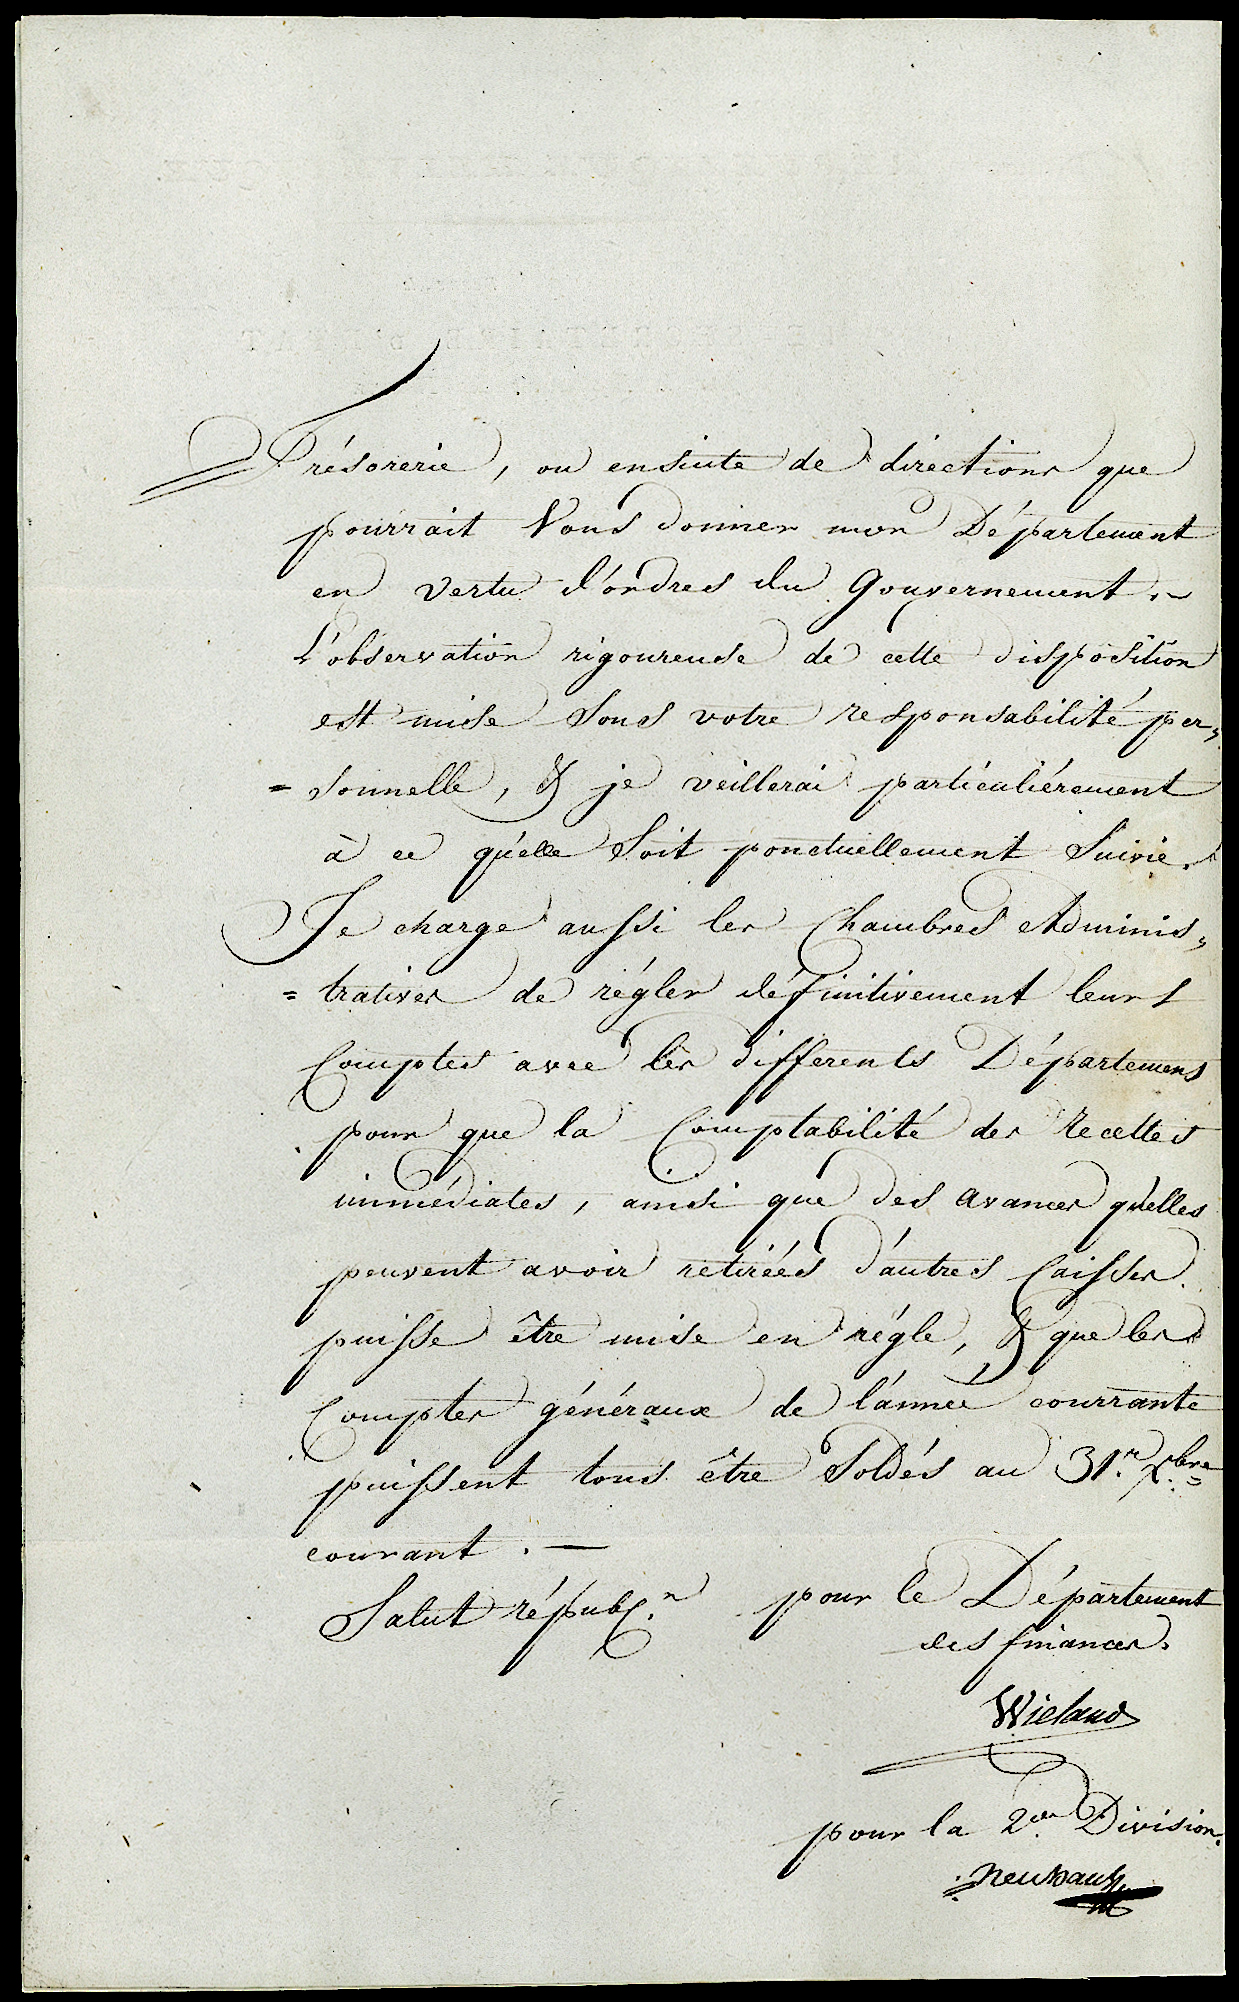 Trésorerie, ou ensuite de directions que
pourrait Vous donner mon Département
en vertu d'ordres du Gouvernement. ~
L'observation rigoureuse de cette disposition
est mise sous votre responsabilité per„
= sonnelle, & je veillerai particuliérement
à ce qu'elle soit ponctuellement suivie.
Je charge aussi les Chambres Adminis„
= tratives de régler définitivement leurs
Comptes avec les differents Départemens
pour que la Comptabilité des recettes
immédiates, ainsi que des avances qu'elles
peuvent avoir retirées d'autres Caisses
puisse être mise en régle, & que les
Comptes généraux de l'année courrante
puissent tous être soldés au 31.r Xbre
courant. —
Salut républ.n pour le Département
des finances.
Wieland
pour la 2.de Division.
Neuhaus